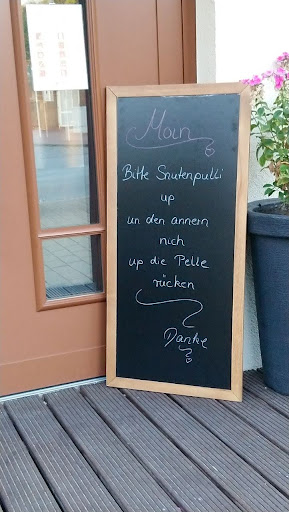 Moin
Bitte Snutenpulli
up
un den annern
nich
up die Pelle
rücken
Danke